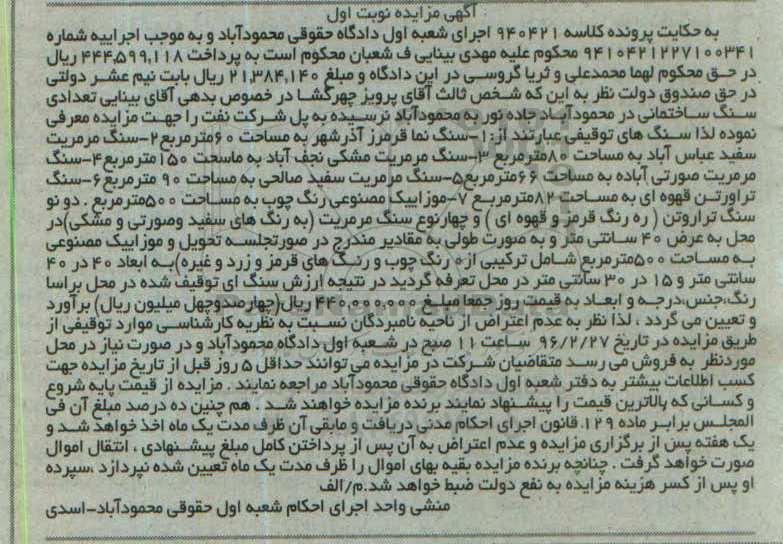 آگهی مزایده نوبت اول
به حکایت پرونده کلاسه ۹۴۰۴۲۱ اجرای شعبه اول دادگاه حقوقی محمودآباد و به موجب اجراییه شماره
۹۴۱۰۴۲۱۲۲۷۱۰۰۳۴۱ محکوم علیه مهدی بینایی ف شعبان محکوم است به پرداخت ۴۴۴,۵۹۹,۱۱۸ ریال
در حق محکوم لهما محمدعلی و ثریا گروسی در این دادگاه و مبلغ ۲۱,۳۸۴,۱۴۰ ریال بابت نیم عشر دولتی
در حق صندوق دولت نظر به این که شخص ثالث آقای پرویز چهرگشا در خصوص بدهی آقای بینایی تعدادی
سنگ ساختمانی در محمودآباد جاده نور به محمودآباد نرسیده به پل شرکت نفت را جهت مزایده معرفی
نموده لذا سنگ های توقیفی عبارتند از:۱-سنگ نما قرمرز آذرشهر به مساحت ۶۰مترمربع۲-سنگ مرمریت
سفید عباس آباد به مساحت ۸۰مترمربع ۳-سنگ مرمریت مشکی نجف آباد به ماسحت ۱۵۰مترمربع۴-سنگ
مرمریت صورتی آباده به مساحت ۶۶مترمربع۵-سنگ مرمریت سفید صالحی به مساحت ۹۰ مترمربع۶-سنگ
تراورتن قهوه ای به مساحت ۸۲مترمربع ۷-موزاییک مصنوعی رنگ چوب به مساحت ۵۰۰مترمربع . دو نو
سنگ تراروتن ( ره رنگ قرمز و قهوه ای ) و چهارنوع سنگ مرمریت (به رنگ های سفید وصورتی و مشکی)در
محل به عرض ۴۰ سانتی متر و به صورت طولی به مقادیر مندرج در صورتجلسه تحویل و موزاییک مصنوعی
به مساحت ۵۰۰مترمربع شامل ترکیبی از۰ رنگ چوب و رنگ های قرمز و زرد و غیره)به ابعاد ۴۰ در ۴۰
سانتی متر و ۱۵ در ۳۰ سانتی متر در محل تعرفه گردید در نتیجه ارزش سنگ ای توقیف شده در محل براسا
رنگ،جنس،درجه و ابعاد به قیمت روز جمعا مبلغ ۴۴۰,۰۰۰,۰۰۰ ریال(چهارصدوچهل میلیون ریال) برآورد
و تعیین می گردد . لذا نظر به عدم اعتراض از ناحیه نامبردگان نسبت به نظریه کارشناسی موارد توقیفی از
طریق مزایده در تاریخ ۹۶/۲/۲۷ ساعت ۱۱ صبح در شعبه اول دادگاه محمودآباد و در صورت نیاز در محل
موردنظر به فروش می رسد متقاضیان شرکت در مزایده می توانند حداقل ۵ روز قبل از تاریخ مزایده جهت
کسب اطلاعات بیشتر به دفتر شعبه اول دادگاه حقوقی محمودآباد مراجعه نمایند . مزایده از قیمت پایه شروع
و کسانی که بالاترین قیمت را پیشنهاد نمایند برنده مزایده خواهند شد . هم چنین ده درصد مبلغ آن فی
المجلس برابر ماده ۱۲۹ قانون اجرای احکام مدنی دریافت و مابقی آن ظرف مدت یک ماه اخذ خواهد شد و
یک هفته پس از برگزاری مزایده و عدم اعتراض به آن پس از پرداختن کامل مبلغ پیشنهادی ، انتقال اموال
صورت خواهد گرفت . چنانچه برنده مزایده بقیه بهای اموال را ظرف مدت یک ماه تعیین شده نپردازد ،سپرده
او پس از کسر هزینه مزایده به نفع دولت ضبط خواهد شد.م/الف
منشی واحد اجرای احکام شعبه اول حقوقی محمودآباد-اسدی